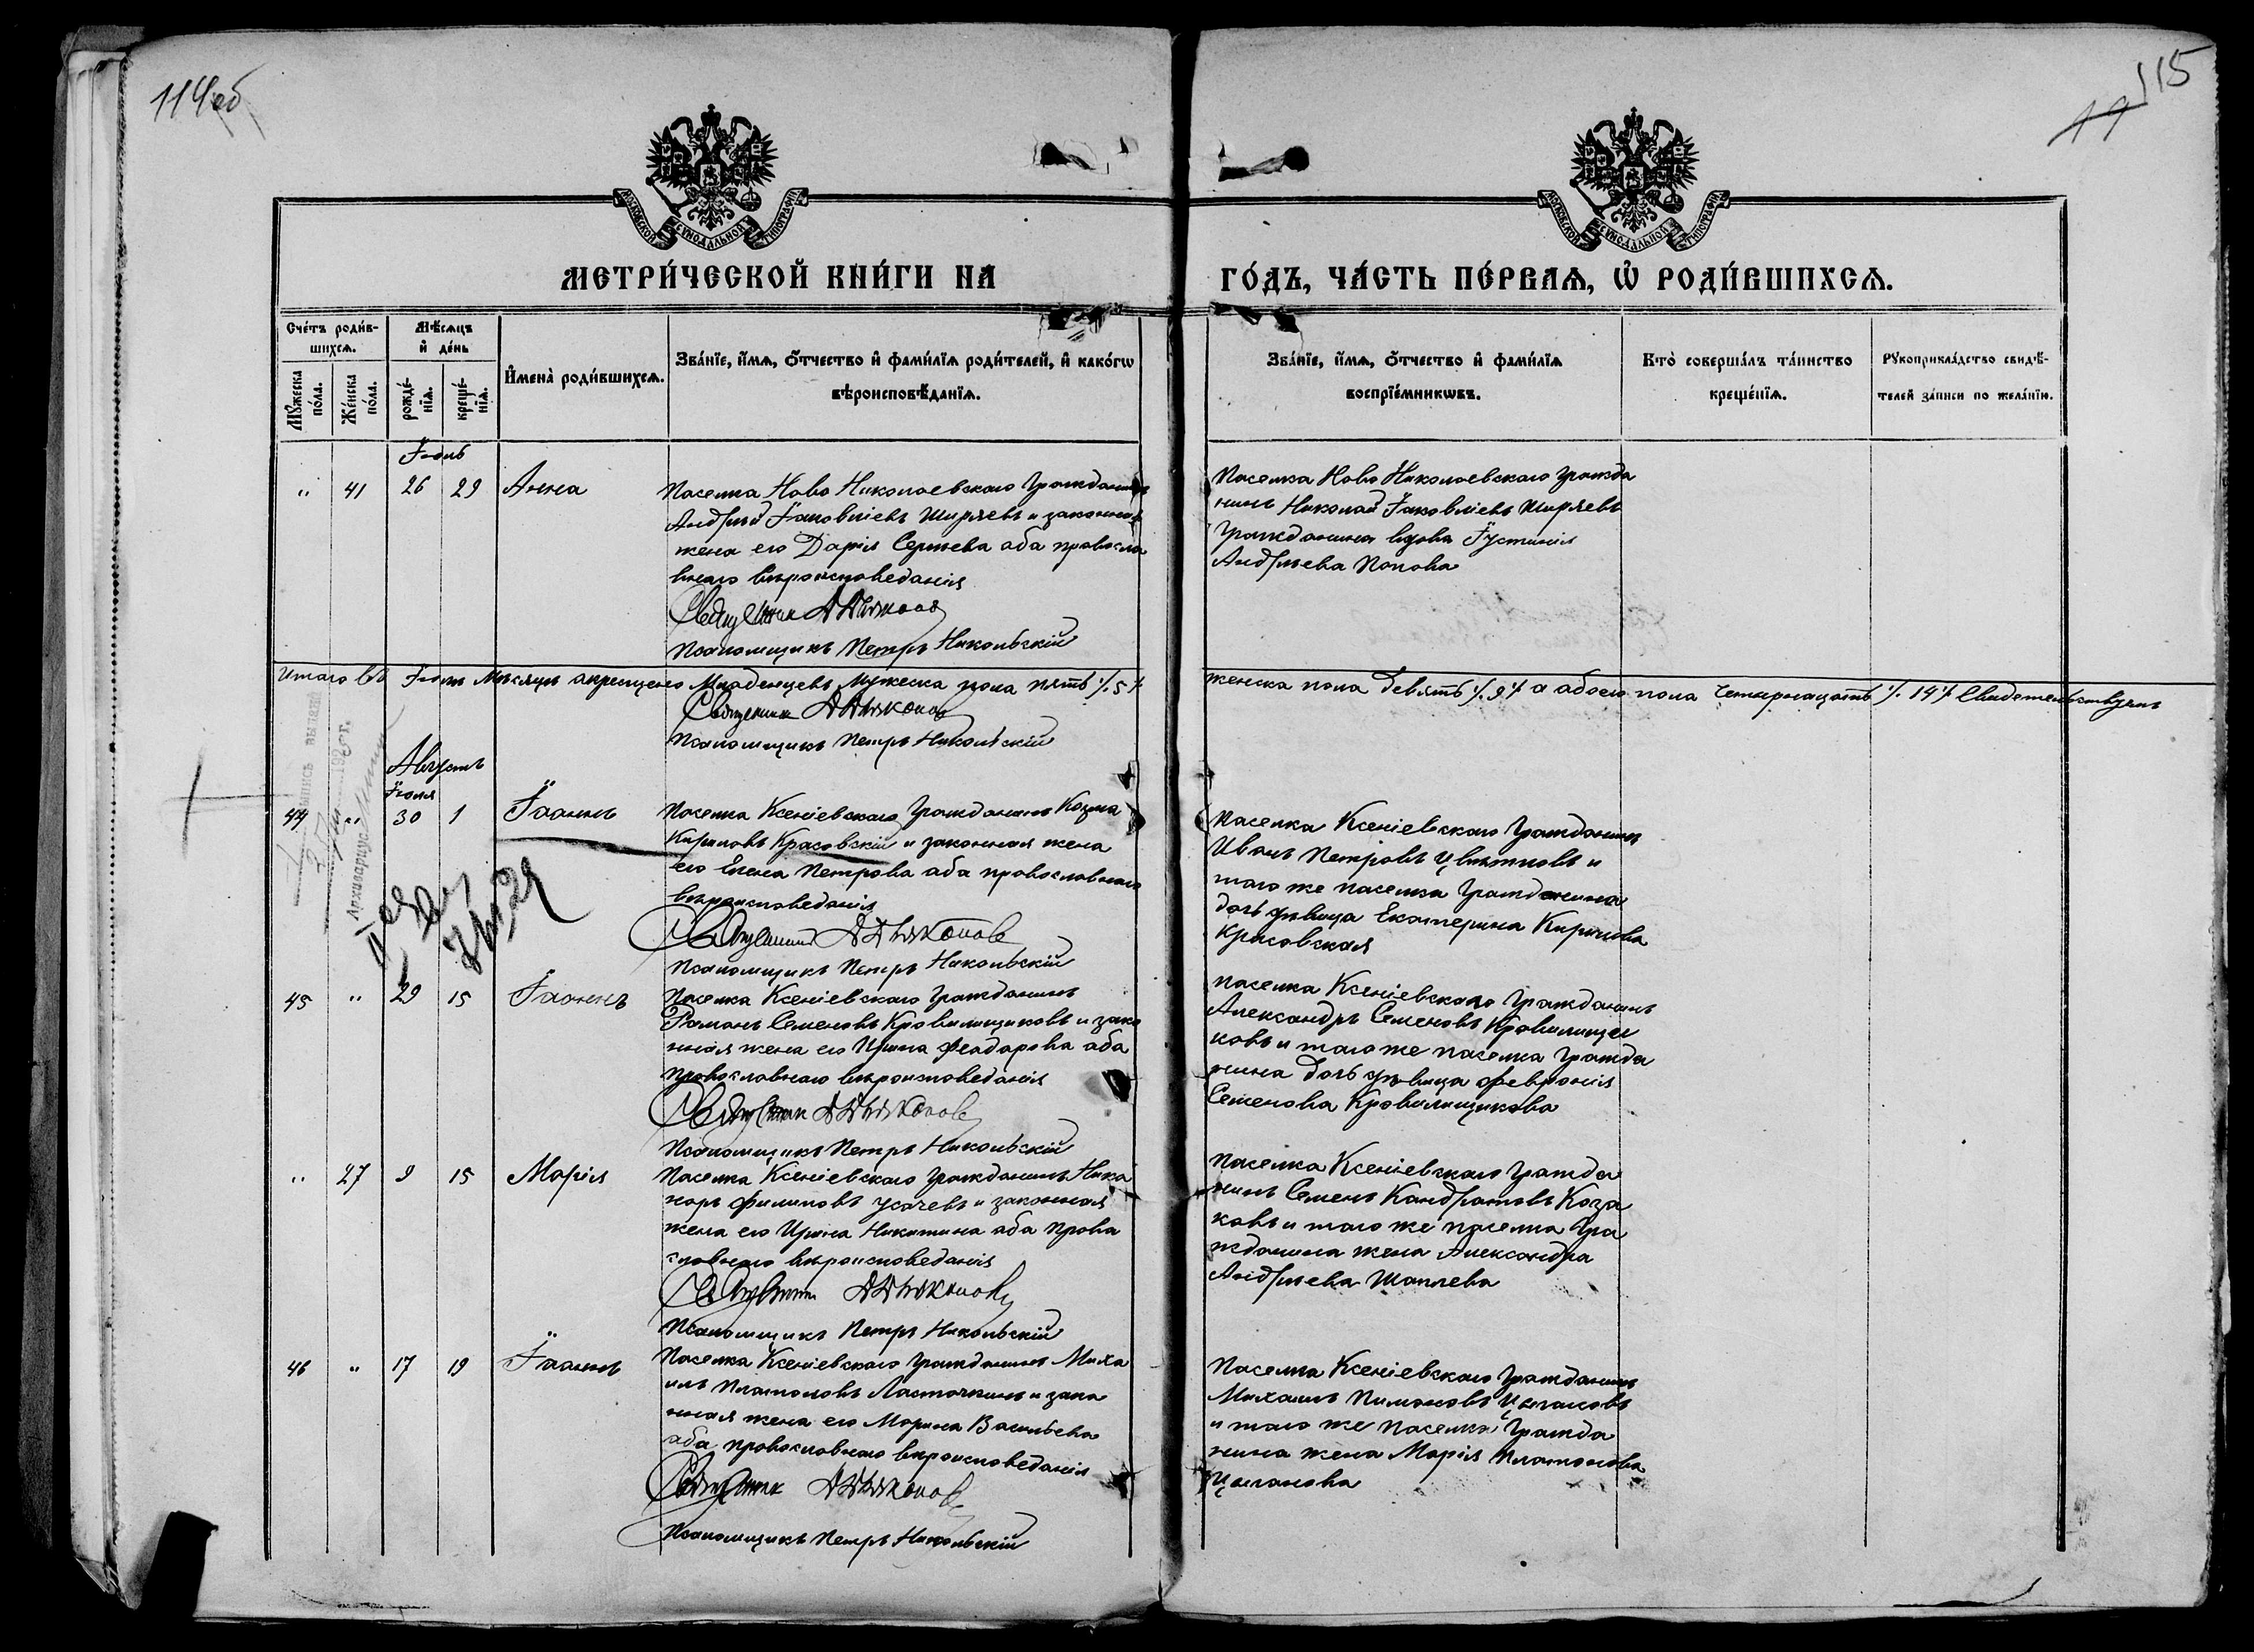 114об
115
11
МОСКОВСКОЙ СѴНОДАЛЬНОЙ ТИПОГРАФІИ
МОСКОВСКОЙ СѴНОДАЛЬНОЙ ТИПОГРАФІИ
МЕТРИ́ЧЕСКОЙ КНИ́ГИ НА
ГО́ДЪ, ЧА́СТЬ ПЕ́РВАѦ, Ѡ҆ РОДИ́ВШИХСѦ.
Сче́тъ роди́в-
шихсѧ.
Мѣ́сѧцъ
и҆ де́нь
Му́жеска по́ла.
Же́нска по́ла.
рожде́-
нїѧ.
креще́-
нїѧ.
И҆мена̀ роди́вшихсѧ.
Зва́нїе, и҆́мѧ, ѻ҆́тчество и҆ фами́лїѧ роди́телей, и҆ како́гѡ
вѣроисповѣ́данїѧ.
Зва́нїе, и҆́мѧ, ѻ҆́тчество и҆ фами́лїѧ
воспрїе́мникѡвъ.
Кто̀ соверша́лъ та́инство
креще́нїѧ.
Рукоприкла́дство свидѣ́-
телей за́писи по жела́нїю.
Іюль
" 41 26 29 Анна
Паселка Ново Николаевскаго Гражданинъ
Андрѣй Іаковлевъ Ширяевъ и законная
жена его Дарія Сергѣева аба православ
внаго вѣроисповеданія
Священник А Дьяконов
Псаломщикъ Петръ Никольскій
Паселка Ново Николаевскаго гражда
нинъ Николай Іаковлевъ Ширяевъ
Гражданина вдова Іустинія
Андрѣева Попова
Итаго въ Іюлѣ Мѣсяцѣ акрещено Младенцевъ Мужеска пола пять /. 5 /.
женска пола девять /. 9 /. а абоего пола четырнацать /. 14 /. Свидетельствуемъ
Священник А Дьяконов
Псаломщикъ Петръ Никольскій
Августъ
Іюля
44 " 30 1 Іааннъ
Паселка Ксеніевскаго Гражданинъ Козма
Кириловъ Красовскій и законная жена
его Елена Петрова аба православнаго
вѣроисповеданія
Священник А Дьяконов
Псаломщикъ Петръ Никольскій
Паселка Ксеніевскаго Гражданинъ
Иванъ Петровъ Цвѣтковъ и
таго же паселка Гражданина
дочь дѣвица Екатерина Кирилова
Красовская
Архиваріусъ
45 " 29 15 Іааннъ
Паселка Ксеніевскаго Гражданинъ
Раманъ Семеновъ Кровилищиковъ и зако
нная жена его Ирина Феадарова аба
православнаго вѣроисповеданія
Священник А Дьяконов
Псаломщикъ Петръ Никольскій
Паселка Ксеніевскаго Гражданинъ
Александръ Семеновъ Кровилищи
ковъ и таго же паселка Гражда
нина дочь дѣвица Февронія
Семенова Кровилищикова
" 27 9 15 Марія
Паселка Ксеніевскаго Гражданинъ Ника
норъ Филиповъ Усачевъ и законная
жена его Ирина Никитина аба права
славнаго вѣроисповеданія
Священник А Дьяконов
Псаломщикъ Петръ Никольскій
Паселка Ксеніевскаго Гражда
нинъ Семенъ Кандратовъ Каза
ковъ и таго же паселка Гра
жданина жена Александра
Андрѣева Шаплева
46 " 17 19 Іааннъ
Паселка Ксеніевскаго Гражданинъ Миха
илъ Платоновъ Ласточкинъ и зако
нная жена его Марина Васильева
аба православнаго вѣроисповеданія
Священник А Дьяконов
Псаломщикъ Петръ Никольскій
Паселка Ксеніевскаго Гражданинъ
Михаилъ Пимоновъ Цыгановъ
и таго же паселка Гражда
нина жена Марія Платонова
Цыганова